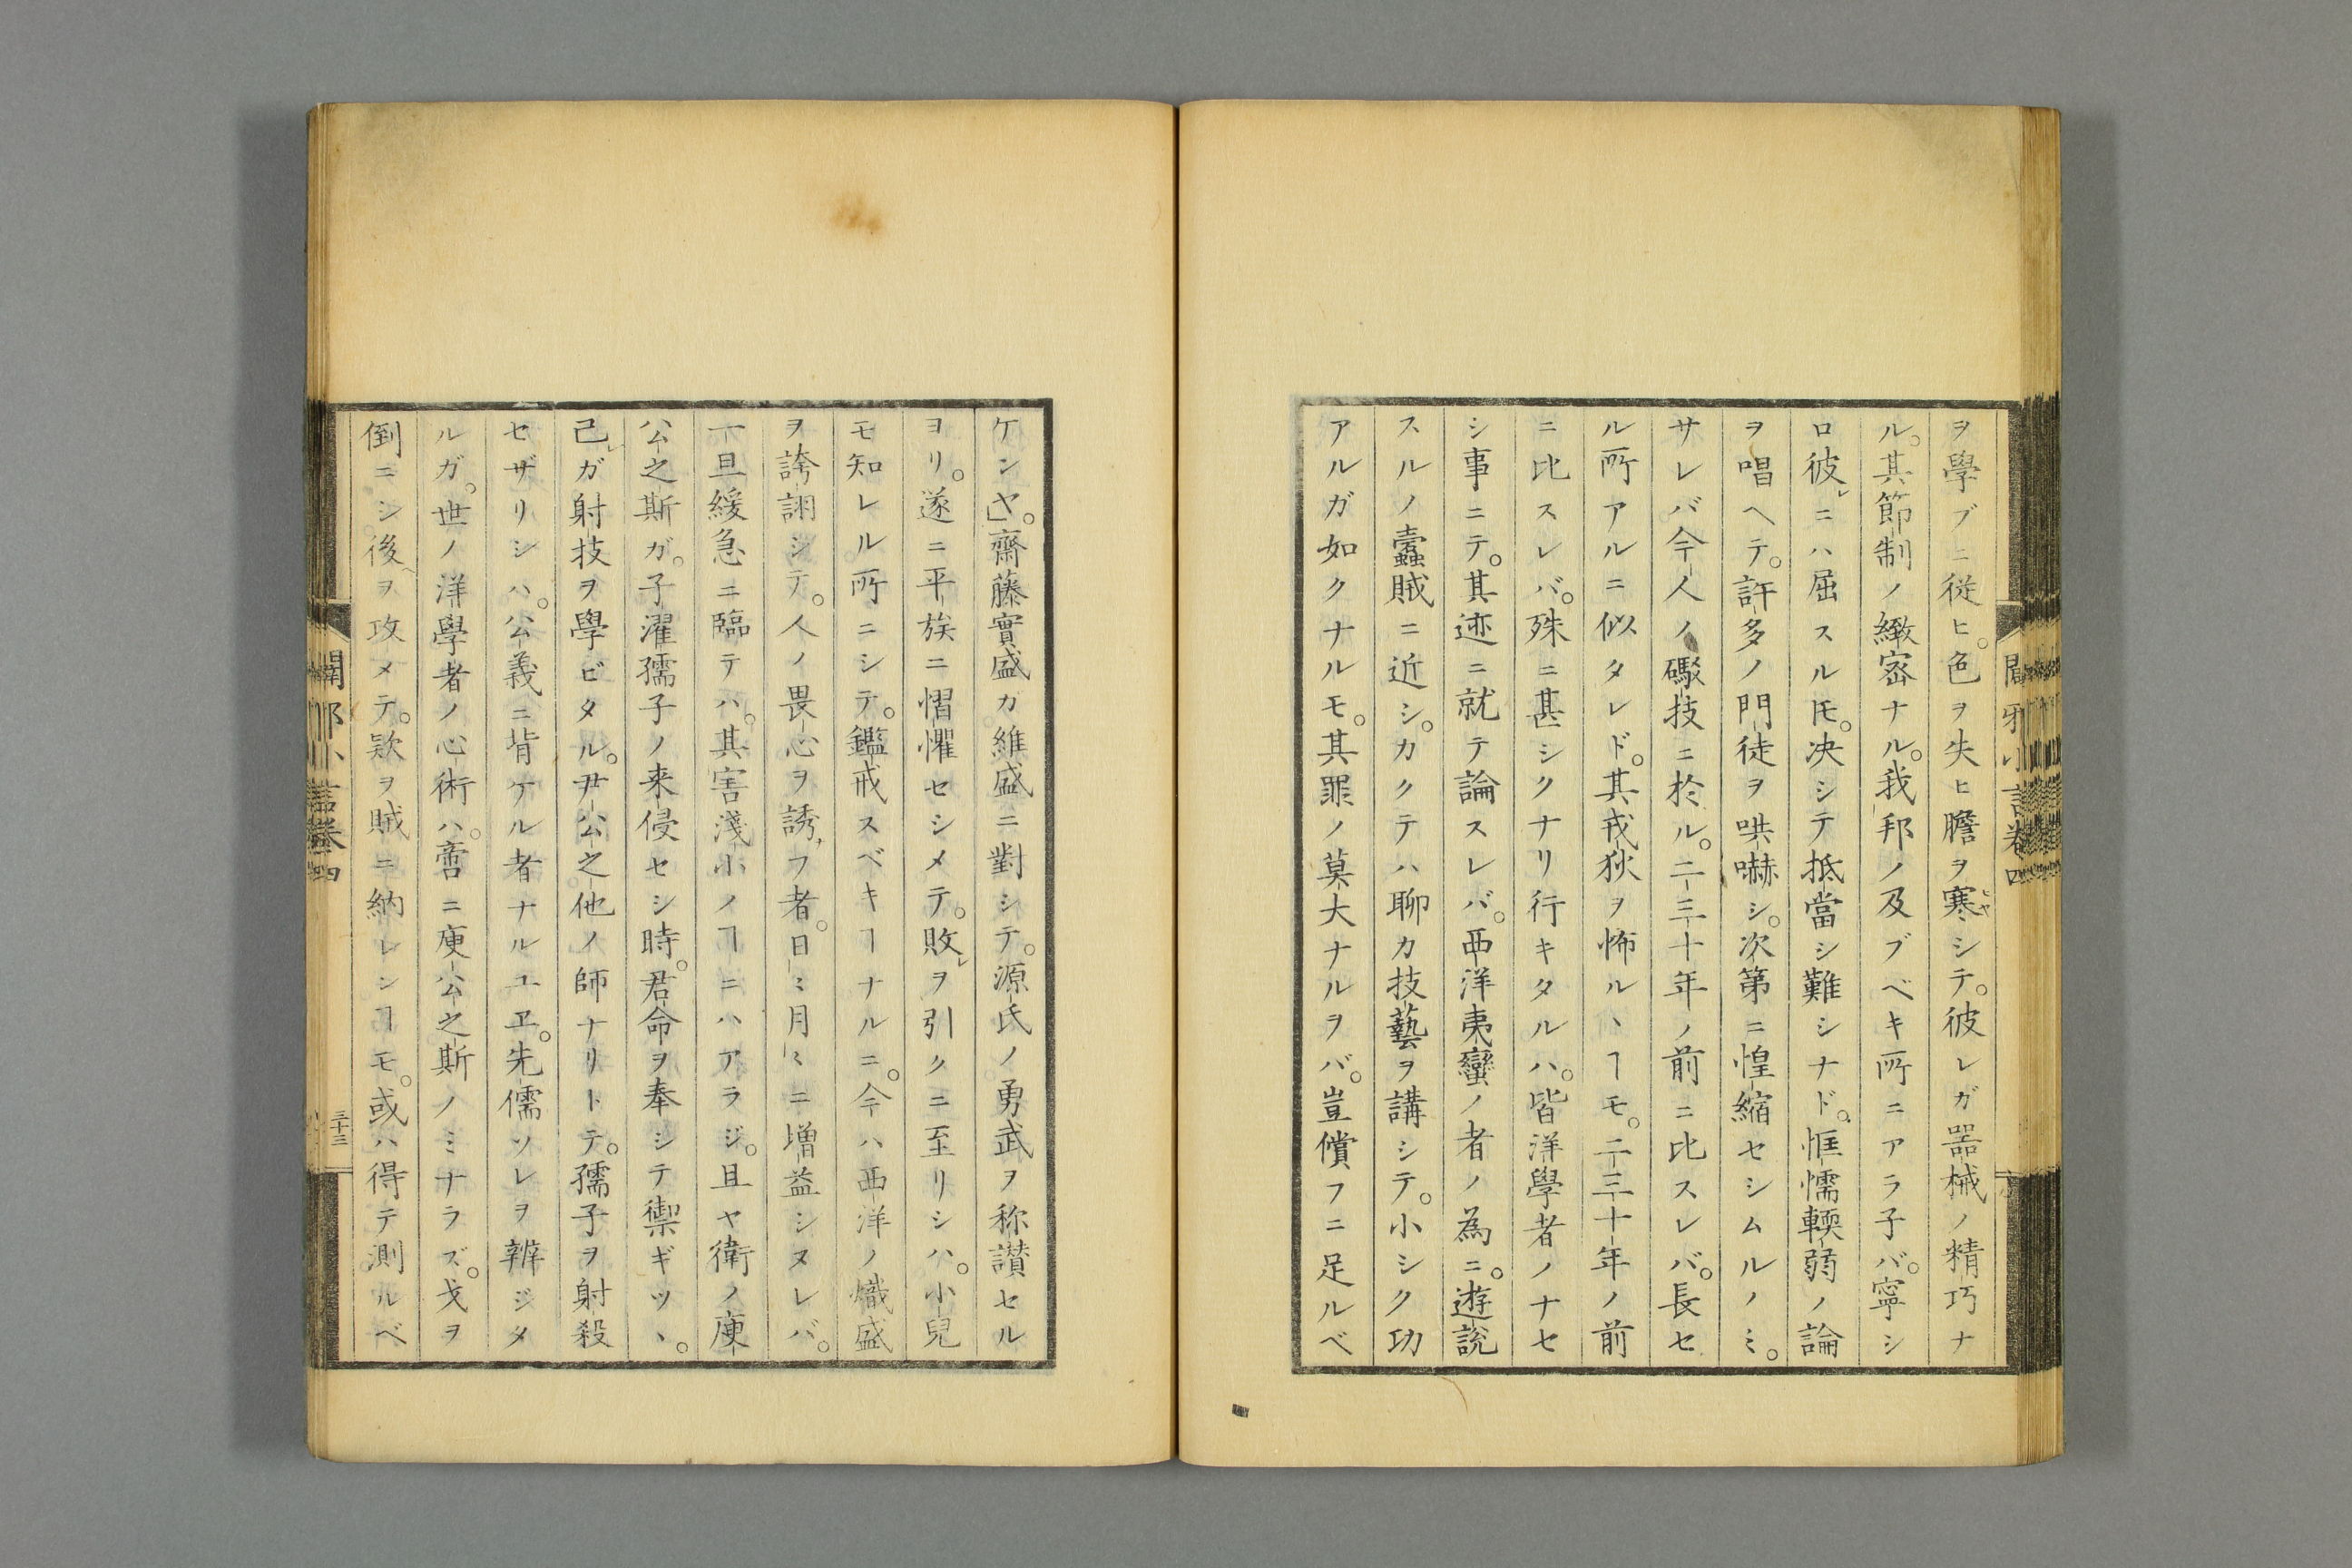 ヲ學ブニ従ヒ。色ヲ失ヒ膽ヲ寒ヒヤシテ。彼レガ器械ノ精巧ナ
ル。其節制ノ緻密ナル。我邦ノ及ブベキ所ニアラ子バ。寧シ
ロ彼レニハ屈スル𪜈。决シテ抵當シ難シナド。恇懦輭弱ノ論
ヲ唱ヘテ。許多ノ門徒ヲ哄嚇シ。次第ニ惶縮セシムルノミ。
サレバ今人ノ礮技ニ於ル。二三十年ノ前ニ比スレバ。長セ
ル所アルニ似タレド。其戎狄ヲ怖ルヽヿモ。二三十年ノ前
ニ比スレバ。殊ニ甚シクナリ行キタルハ。皆洋學者ノナセ
シ事ニテ。其迹ニ就テ論スレバ。西洋夷蠻ノ者ノ為ニ。遊説
スルノ蠧賊ニ近シ。カクテハ聊カ技藝ヲ講シテ。小シク功
アルガ如クナルモ。其罪ノ莫大ナルヲバ。豈償フニ足ルベ
ケンヤ」。齋藤實盛カ維盛ニ對シテ。源氏ノ勇武ヲ称讃セル
ヨリ。遂ニ平族ニ慴懼セシメテ。敗レヲ引クニ至リシハ。小兒
モ知レル所ニシテ。鑑戒スベキヿナルニ。今ハ西洋ノ熾盛
ヲ誇詡シテ。人ノ畏心ヲ誘フ者。日ミ月ミニ増益シヌレバ。
一旦緩急ニ臨テハ。其害淺小ノヿニハアラジ。且ヤ衛ノ庾
公之斯ガ。子濯孺子ノ来侵セシ時。君命ヲ奉シテ禦ギツヽ。
己レガ射技ヲ學ビタル。尹公之他ノ師ナリトテ。孺子ヲ射殺
セザリシハ。公義ニ背ケル者ナルユヱ。先儒ソレヲ辨ジタ
ルガ。世ノ洋學者ノ心術ハ。啻ニ庾公之斯ノミナラズ。戈ヲ
倒ニシ後ヘヲ攻メテ。款ヲ賊ニ納レンヿモ。或ハ得テ測ルベ
闢邪小言卷四
三十三